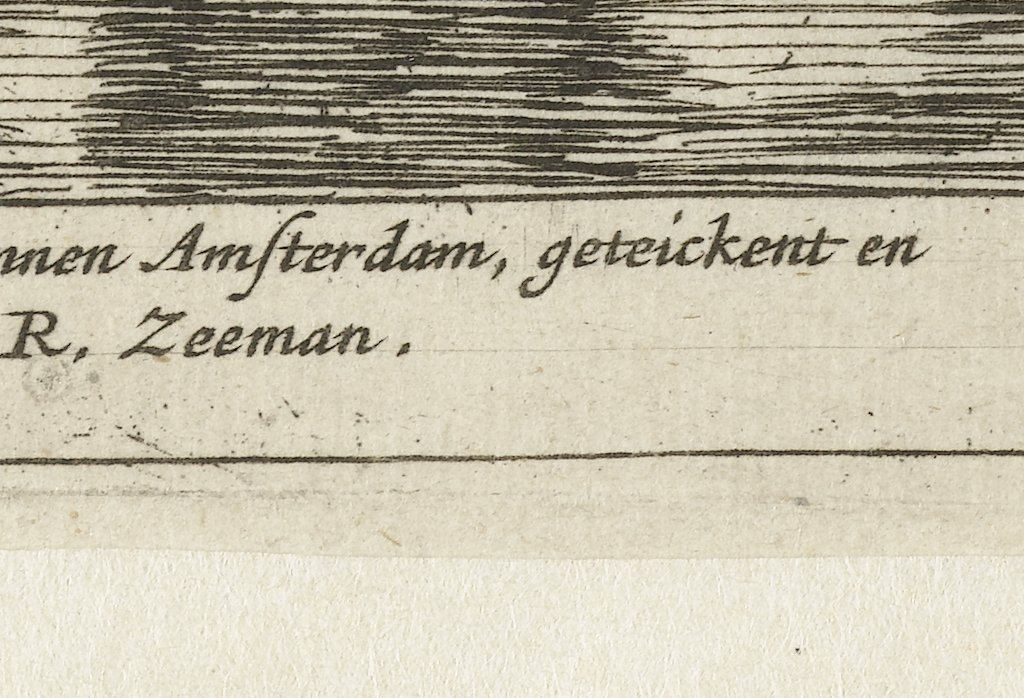 nnen Amſterdam, geteickent en
R. Zeeman.